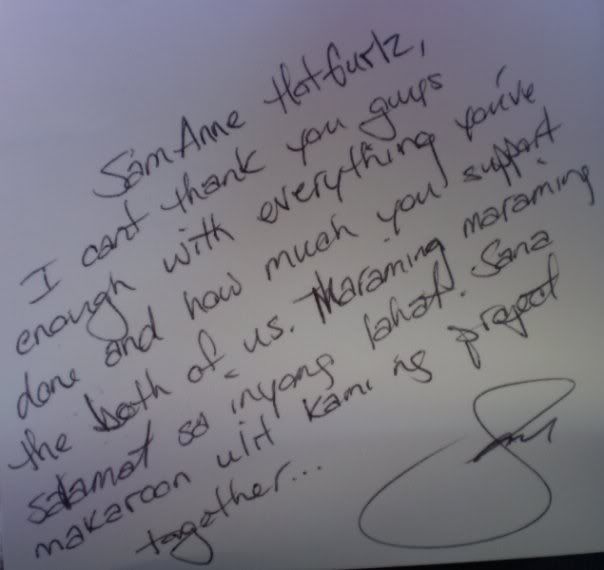 SamAnne HotGurlz,
I can't thank you guys
enough with everything you've
done and how much you support
the both of us. Maraming maraming
salamat sa inyong lahat. Sana
makaroon ulit kami ng project
together...